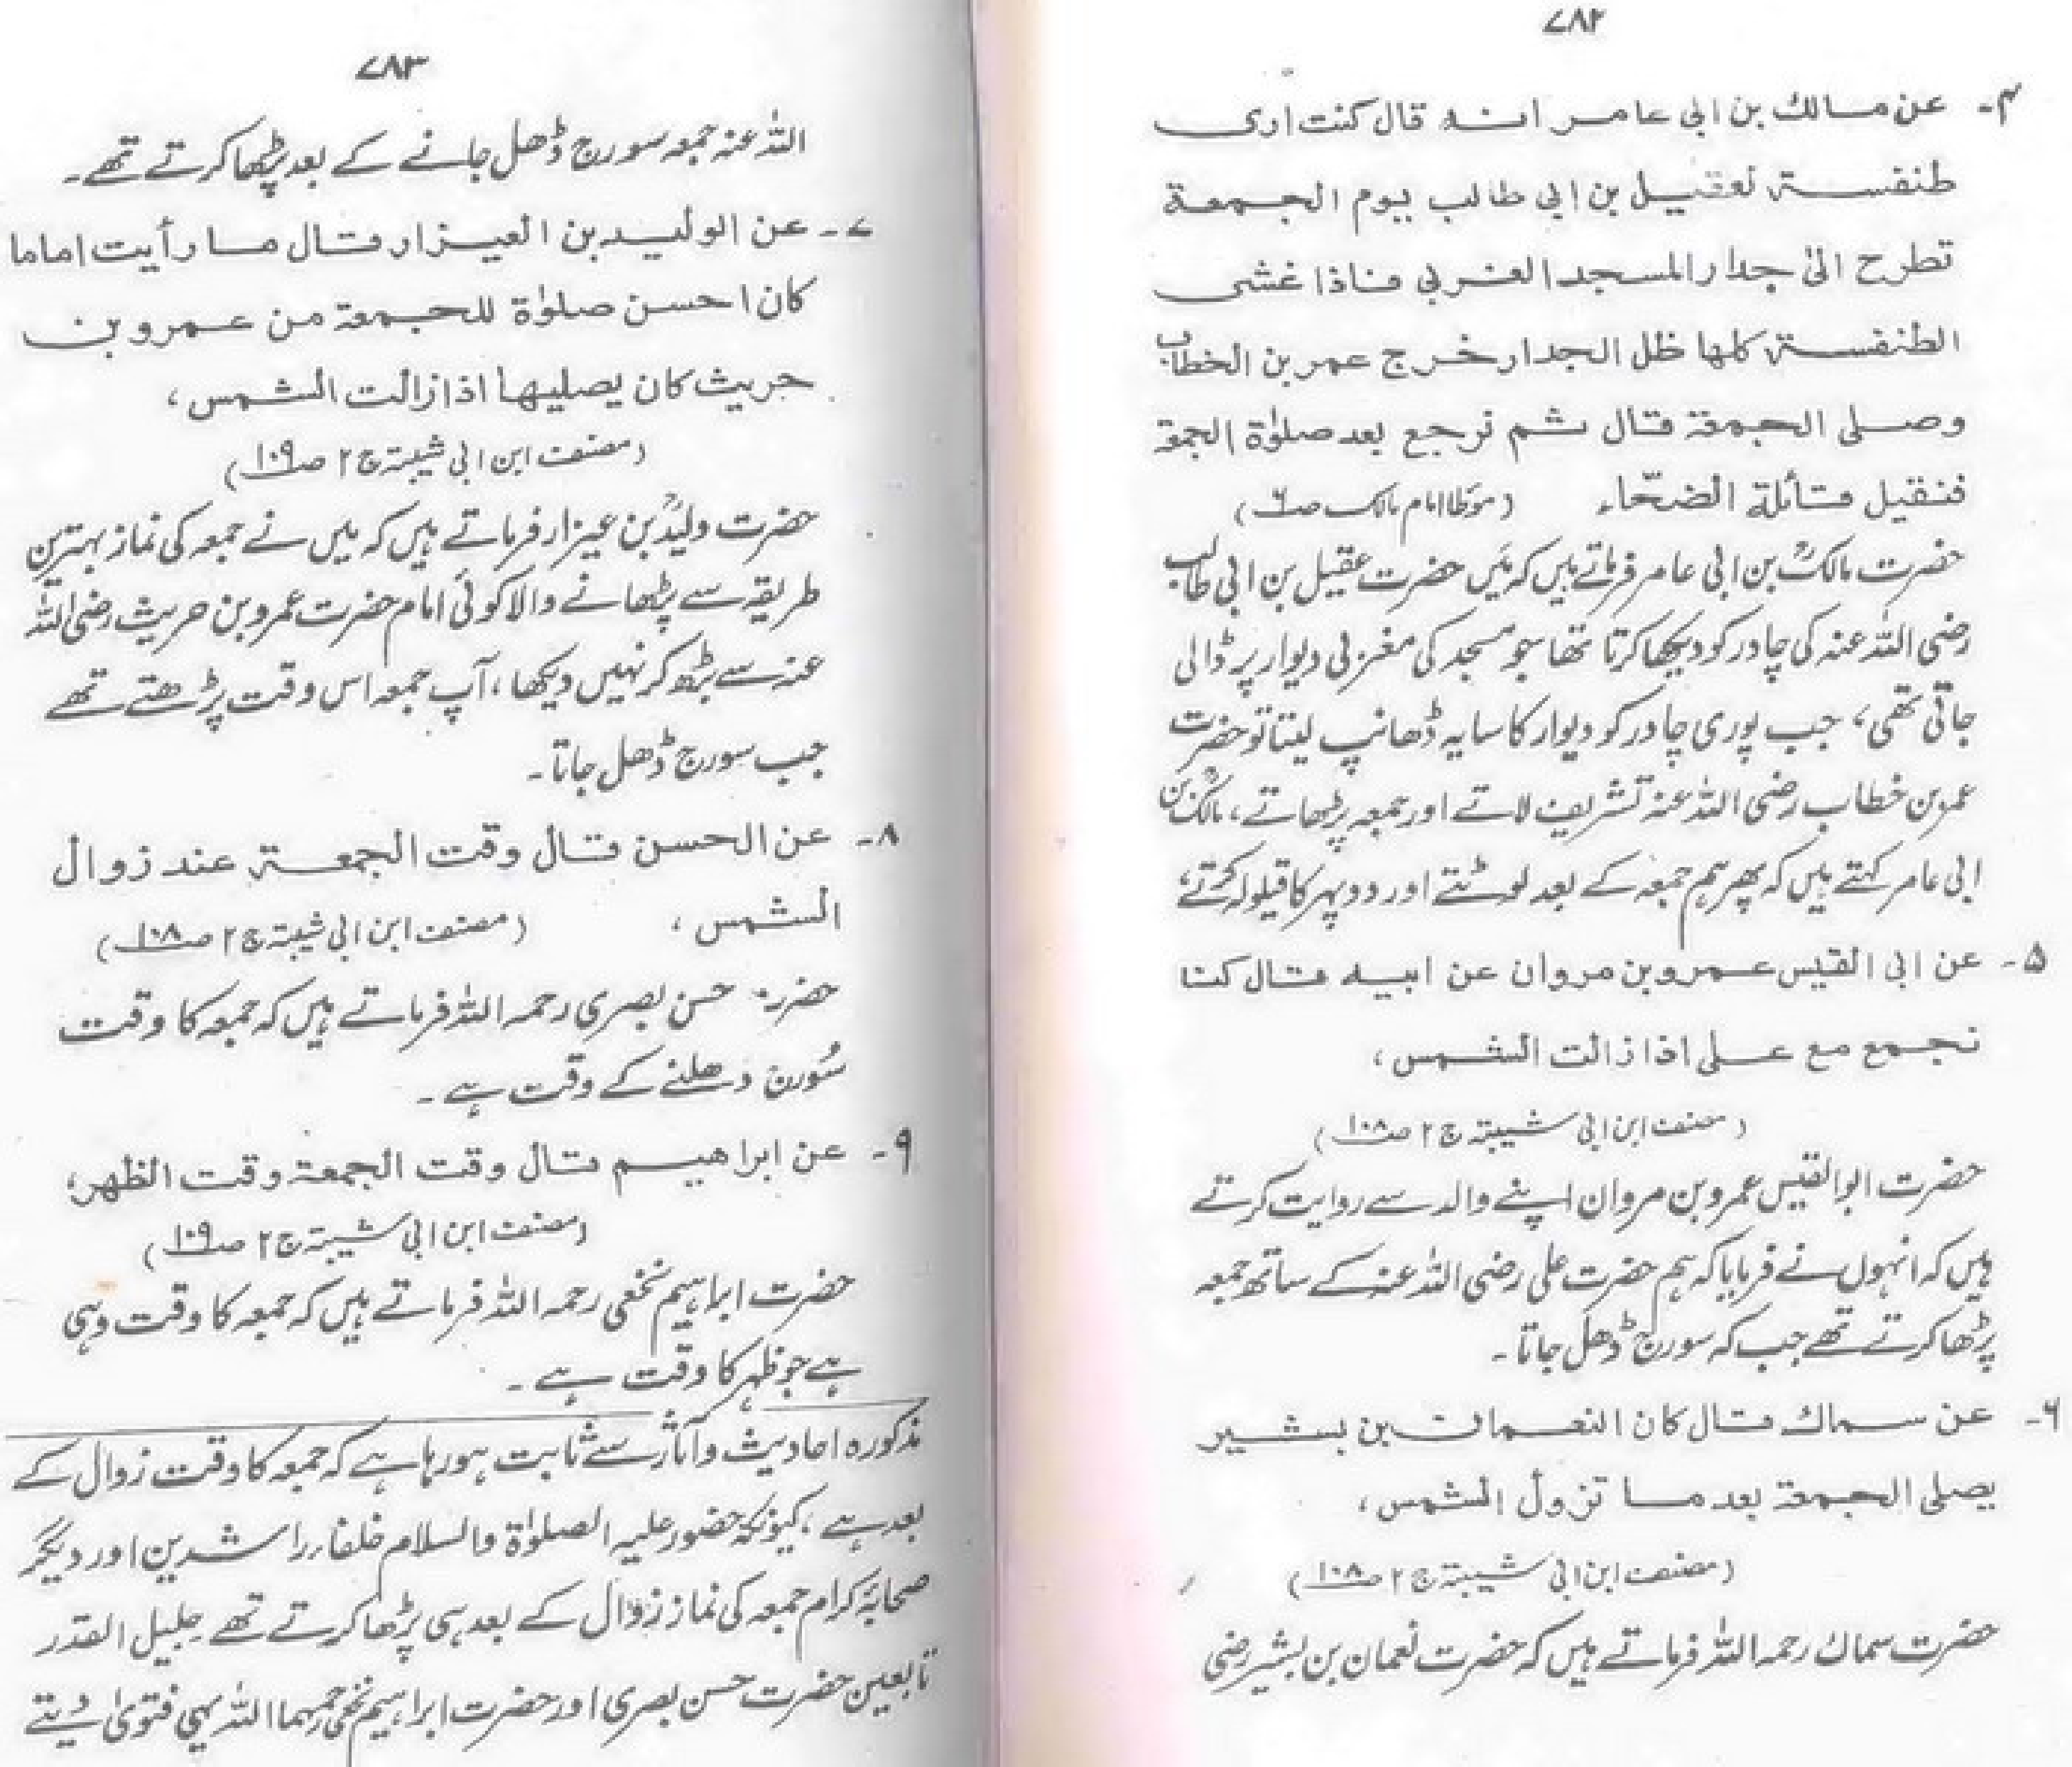 ۷۸۲
۴۔ عن مالك بن ابی عامر انه قال كنت اری
طنفسة لعقيل بن ابی طالب يوم الجمعة
تطرح الیٰ جدار المسجد الغربی فاذا غشی
الطنفسة كلها ظل الجدار خرج عمر بن الخطاب
وصلی الجمعة قال ثم نرجع بعد صلوٰة الجمعة
فنقيل قائلة الضحّاء (مؤطا امام مالک ص۶)
حضرت مالکؒ بن ابی عامر فرماتے ہیں کہ میں حضرت عقیل بن ابی طالب
رضی اللہ عنہ کی چادر کو دیکھا کرتا تھا جو مسجد کی مغربی دیوار پر ڈالی
جاتی تھی، جب پوری چادر کو دیوار کا سایہ ڈھانپ لیتا تو حضرت
عمر بن خطاب رضی اللہ عنہ تشریف لاتے اور جمعہ پڑھاتے، مالکؒ بن
ابی عامر کہتے ہیں کہ پھر ہم جمعہ کے بعد لوٹتے اور دوپہر کا قیلولہ کرتے،
۵۔ عن ابی القيس عمرو بن مروان عن ابيه قال كنا
نجمع مع علی اذا زالت الشمس،
(مصنف ابن ابی شیبۃ ج ۲ ص۱۰۸)
حضرت ابوالقیس عمرو بن مروان اپنے والد سے روایت کرتے
ہیں کہ انہوں نے فرمایا کہ ہم حضرت علی رضی اللہ عنہ کے ساتھ جمعہ
پڑھا کرتے تھے جب کہ سورج ڈھل جاتا۔
۶۔ عن سماك قال كان النعمان بن بشير
يصلی الجمعة بعد ما تزول الشمس،
(مصنف ابن ابی شیبۃ ج ۲ ص۱۰۸)
حضرت سماک رحمہ اللہ فرماتے ہیں کہ حضرت نعمان بن بشیر رضی
۷۸۳
اللہ عنہ جمعہ سورج ڈھل جانے کے بعد پڑھا کرتے تھے۔
۷۔ عن الوليد بن العيزار قال ما رأيت اماما
كان احسن صلوٰة للجمعة من عمرو بن
حريث كان يصليها اذا زالت الشمس،
(مصنف ابن ابی شیبۃ ج ۲ ص۱۰۹)
حضرت ولیدؒ بن عیزار فرماتے ہیں کہ میں نے جمعہ کی نماز بہترین
طریقہ سے پڑھانے والا کوئی امام حضرت عمرو بن حریث رضی اللہ
عنہ سے بڑھ کر نہیں دیکھا، آپ جمعہ اس وقت پڑھتے تھے
جب سورج ڈھل جاتا۔
۸۔ عن الحسن قال وقت الجمعة عند زوال
الشمس، (مصنف ابن ابی شیبۃ ج ۲ ص۱۰۸)
حضرت حسن بصری رحمہ اللہ فرماتے ہیں کہ جمعہ کا وقت
سُورج ڈھلنے کے وقت ہے۔
۹۔ عن ابراهيم قال وقت الجمعة وقت الظهر،
(مصنف ابن ابی شیبۃ ج ۲ ص۱۰۹)
حضرت ابراہیم نخعی رحمہ اللہ فرماتے ہیں کہ جمعہ کا وقت وہی
ہے جو ظہر کا وقت ہے۔
مذکورہ احادیث و آثار سے ثابت ہو رہا ہے کہ جمعہ کا وقت زوال کے
بعد ہے، کیونکہ حضور علیہ الصلوٰۃ والسلام خلفاء راشدین اور دیگر
صحابۂ کرام جمعہ کی نماز زوال کے بعد ہی پڑھا کرتے تھے جلیل القدر
تابعین حضرت حسن بصری اور حضرت ابراہیم نخعی رحمہما اللہ یہی فتویٰ دیتے